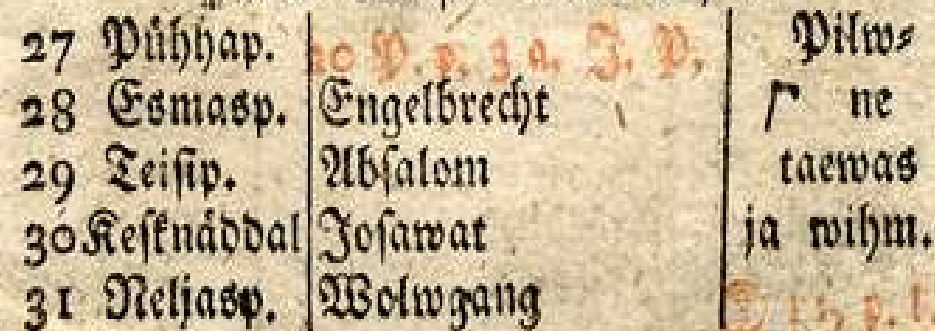 27 Pühhap. 20 P. p. 3 a. J. P. Pilw⸗
28 Esmasp. Engelbrecht ne
29 Teisip. Absalom taewas
30 Kesknäddal Josawat ja wihm.
31 Neljasp. Wolwgang